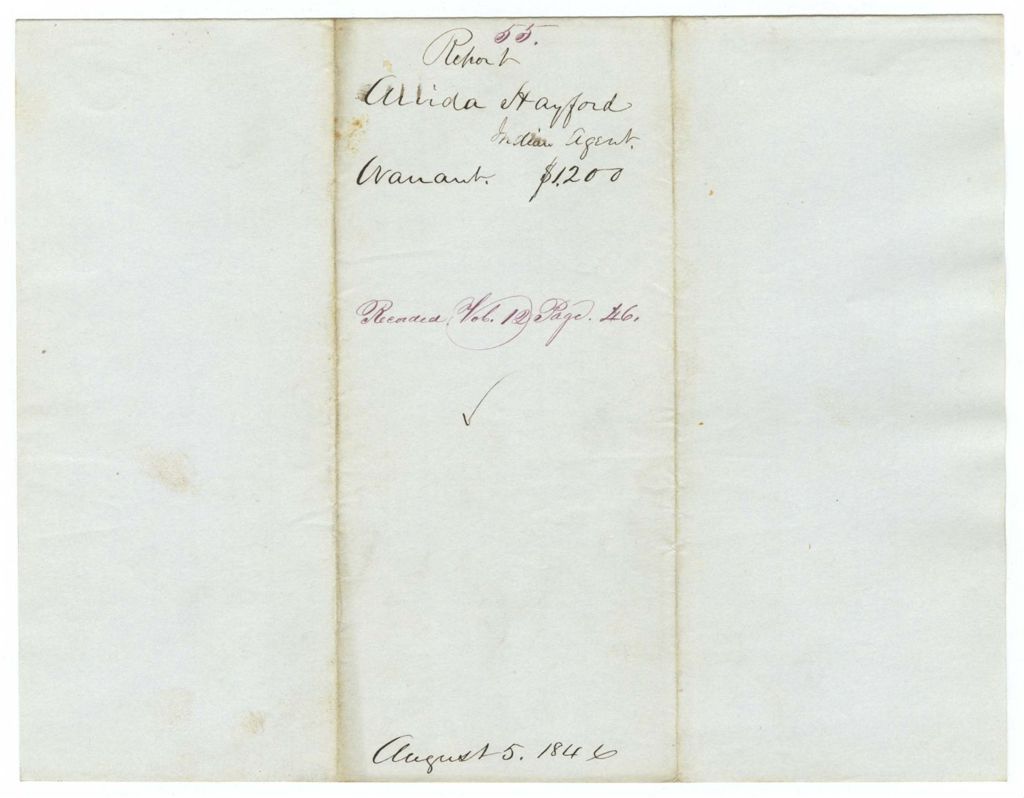 55.
Report
Arvida Hayford
Indian Agent.
Warrant. $1,200
Recorded, Vol. 12, Page. 46.
August 5. 1846